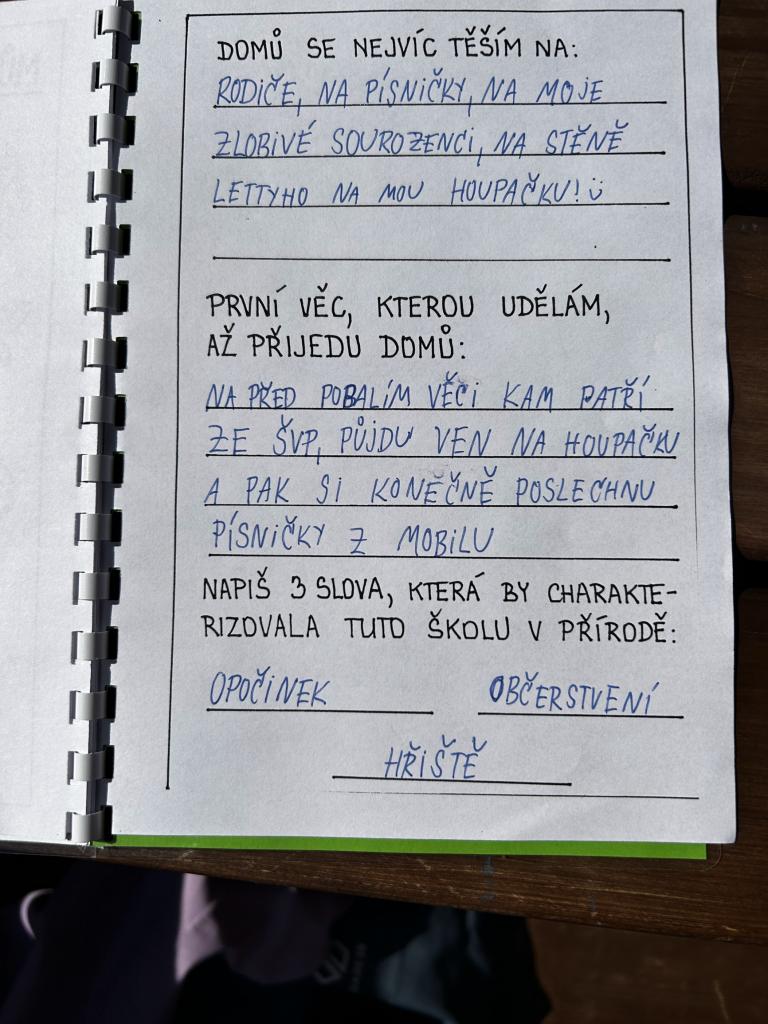 DOMŮ SE NEJVÍC TĚŠÍM NA:
RODIČE, NA PÍSNIČKY, NA MOJE
ZLOBIVÉ SOUROZENCI, NA STĚNĚ
LETTYHO NA MOU HOUPAČKU! ü
PRVNÍ VĚC, KTEROU UDĚLÁM,
AŽ PŘIJEDU DOMŮ:
NA PŘED POBALÍM VĚCI KAM PATŘÍ
ZE ŠVP, PŮJDU VEN NA HOUPAČKU
A PAK SI KONĚČNĚ POSLECHNU
PÍSNIČKY Z MOBILU
NAPIŠ 3 SLOVA, KTERÁ BY CHARAKTE-
RIZOVALA TUTO ŠKOLU V PŘÍRODĚ:
OPOČINEK OBČERSTVENÍ
HŘIŠTĚ